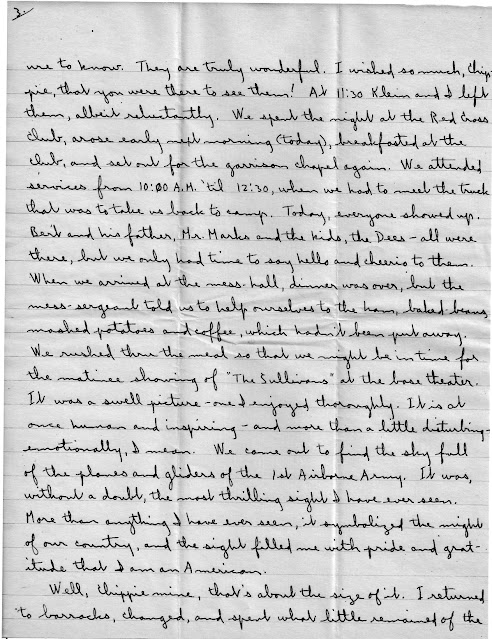 3.
ure to know. They are truly wonderful. I wished so much, Chip-
pie, that you were there to see them! At 11:30 Klein and I left
them, albeit reluctantly. We spent the night at the Red Cross
Club, arose early next morning (today), breakfasted at the
club, and set out for the garrison chapel again. We attended
services from 10:00 A.M. 'til 12:30, when we had to meet the truck
that was to take us back to camp. Today, everyone showed up.
Berit and his father, Mr. Marks and the kids, the Dees - all were
there, but we only had time to say hello and cheerio to them.
When we arrived at the mess-hall, dinner was over, but the
mess-sergeant told us to help ourselves to the ham, baked beans,
mashed potatoes and coffee, which hadn't been put away.
We rushed thru the meal so that we might be in time for
the matinee showing of "The Sullivans" at the base theater.
It was a swell picture - one I enjoyed thoroughly. It is at
once human and inspiring - and more than a little disturbing -
emotionally, I mean. We came out to find the sky full
of the planes and gliders of the 1st Airborne Army. It was,
without a doubt, the most thrilling sight I have ever seen.
More than anything I have ever seen, it symbolized the might
of our country, and the sight filled me with pride and grat-
itude that I am an American.
Well, Chippie mine, that's about the size of it. I returned
to barracks, changed, and spent what little remained of the